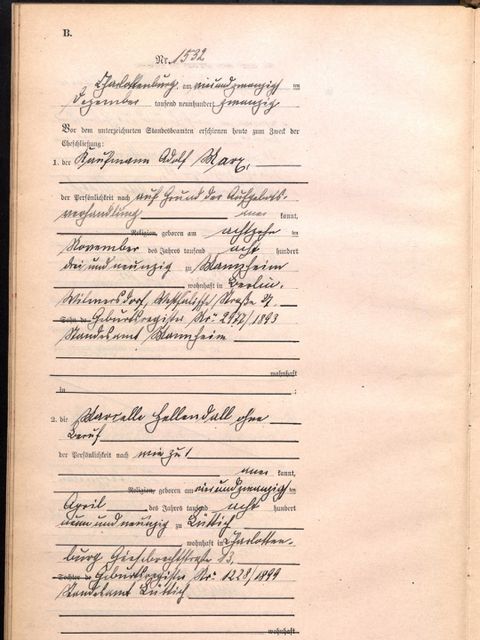 B.
Nr. 1532
Charlottenburg, am vierundzwanzigsten
Dezember tausend neunhundert zwanzig
Vor dem unterzeichneten Standesbeamten erschienen heute zum Zweck der
Eheschließung:
1. der Kaufmann Adolf Marx,
der Persönlichkeit nach auf Grund der Aufgebots-
verhandlung aner kannt,
Religion, geboren am achtzehnten
November des Jahres tausend acht hundert
drei und neunzig zu Mannheim
wohnhaft in Berlin-
Wilmersdorf, Westfälische Straße
Sohn de Geburtsregister Nr. 2977/1893
Standesamt Mannheim
wohnhaft
in ;
2. die Marcelle Hellendall ohne
Beruf
der Persönlichkeit nach wie zu 1
aner kannt,
Religion, geboren am vierundzwanzigsten
April des Jahres tausend acht hundert
neun und neunzig zu Lüttich
wohnhaft in Charlotten-
burg Giesebrechtstraße 13,
Tochter de Geburtsregister Nr. 1228/1899
Standesamt Lüttich
wohnhaft